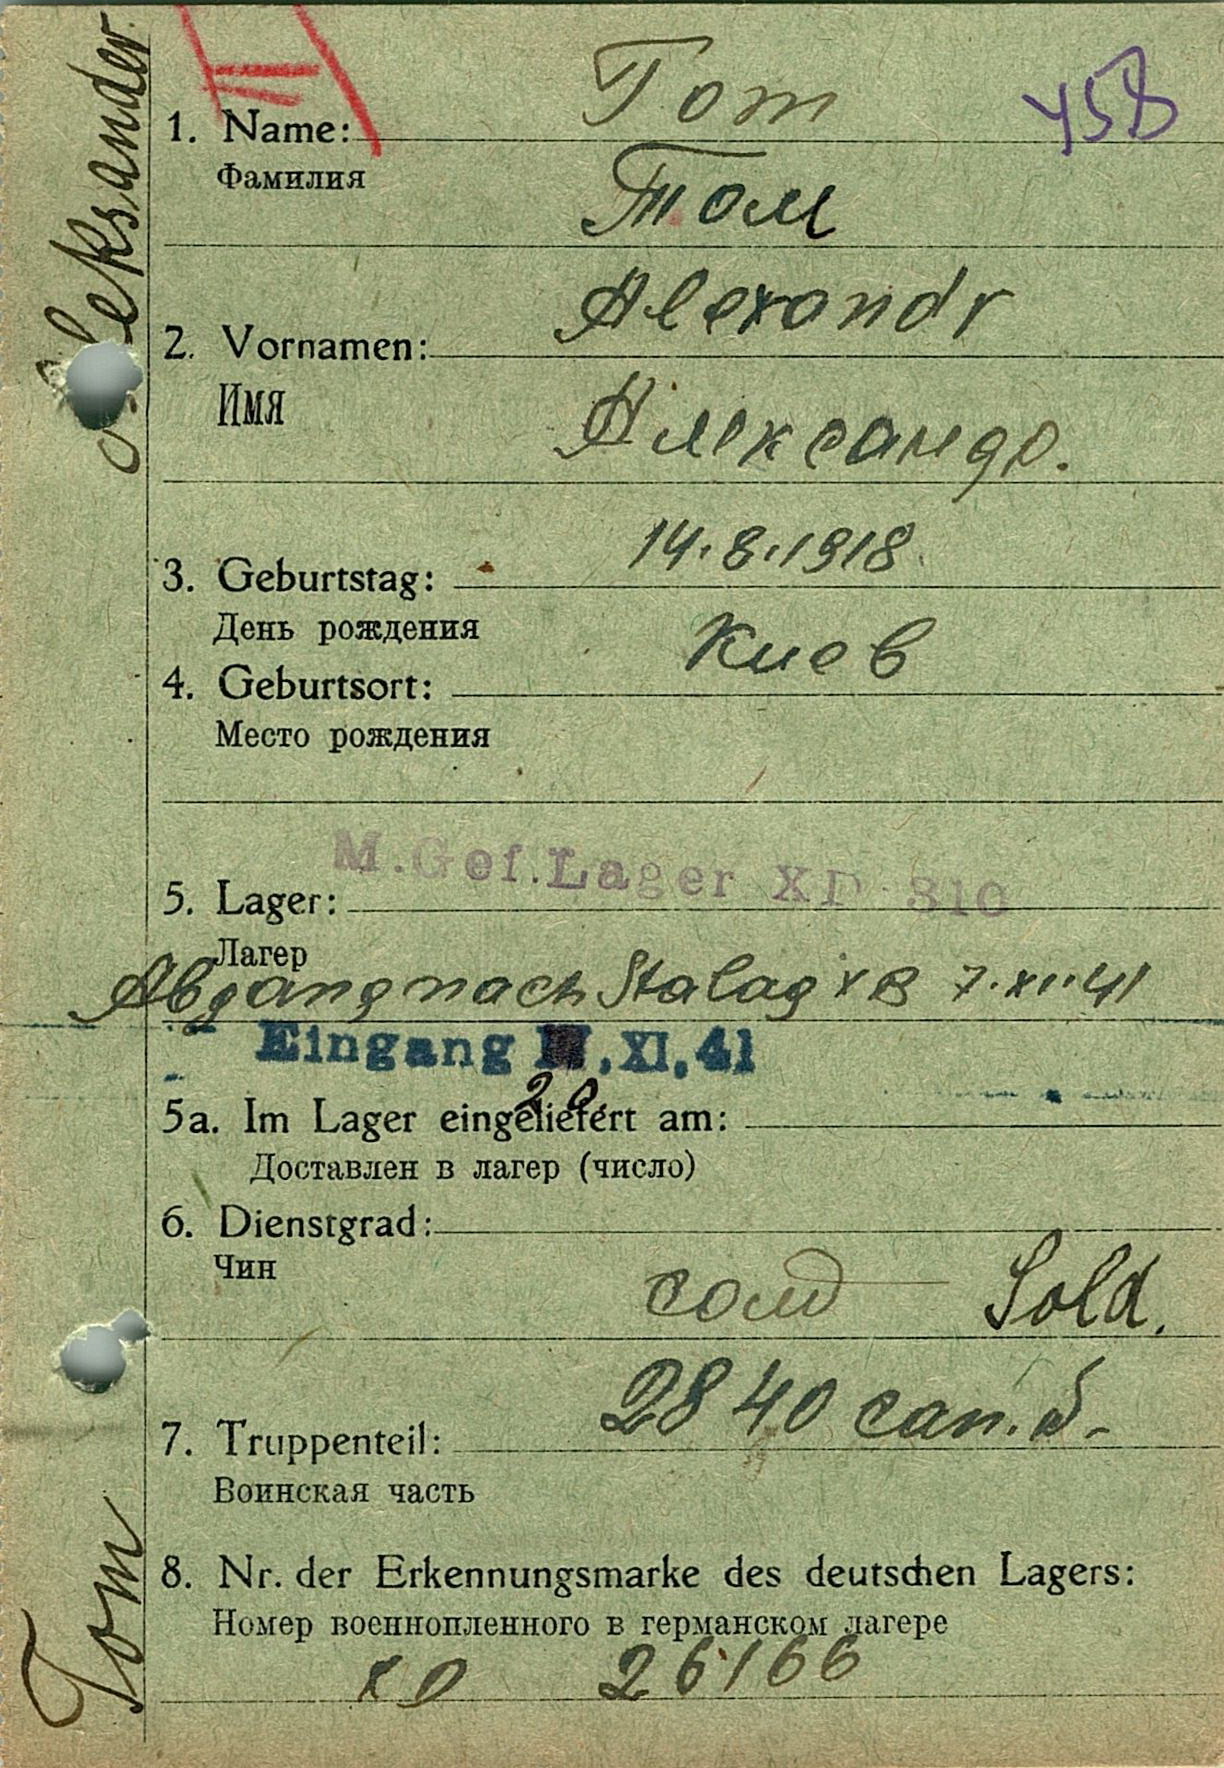 Aleksander
Tom
458
1. Name:
Фамилия
Том
2. Vornamen:
Alexandr
Имя
Александр.
3. Geburtstag:
14.8.1918.
День рождения
Киев
4. Geburtsort:
Место рождения
M.Gef.Lager XD 310
5. Lager:
Лагер
Abgang nach Stalag XB 7.XII.41
Eingang .XI.41
20.
5a. Im Lager eingeliefert am:
Доставлен в лагер (число)
6. Dienstgrad:
Чин
солд Sold.
2840 сап. б-
7. Truppenteil:
Воинская часть
8. Nr. der Erkennungsmarke des deutschen Lagers:
Номер военнопленного в германском лагере
XD 26166
Tom